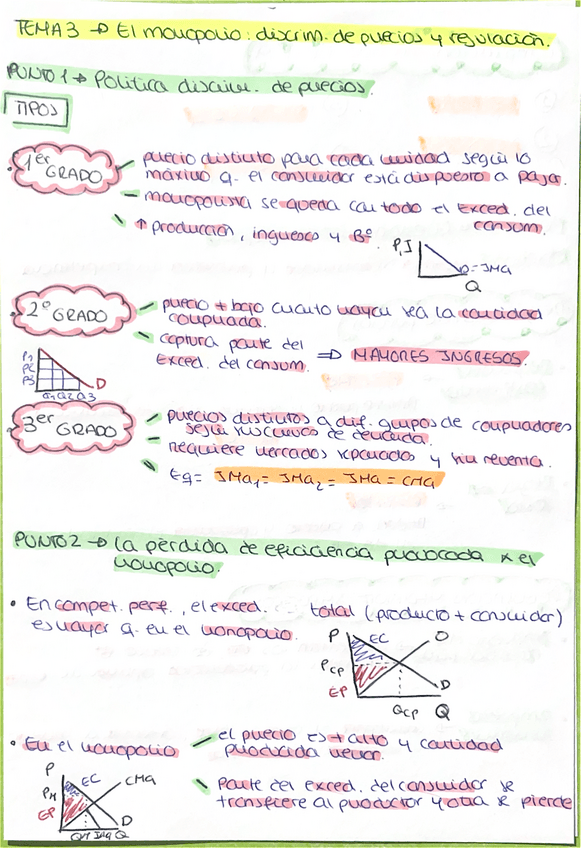 TEMA 3 → El monopolio: discrim. de precios y regulación.
PUNTO 1 → Política discrim. de precios.
TIPOS
1er GRADO
precio distinto para cada unidad según lo
máximo q. el consumidor está dispuesto a pagar.
monopolista se queda con todo el Exced. del
consum.
↑ producción, ingresos y Bº.
P, I
D=IMa
Q
2º GRADO
precio + bajo cuanto mayor sea la cantidad
comprada.
captura parte del
Exced. del consum. ⇒ MAYORES INGRESOS.
P1
P2
P3
D
Q1 Q2 Q3
3er GRADO
precios distintos a dif. grupos de compradores
según sus curvas de demanda.
Requiere mercados separados y sin reventa.
Eq= IMa1 = IMa2 = IMa = CMa
PUNTO 2 → La pérdida de eficiencia provocada x el
monopolio.
• En compet. perf., el exced. total (producto + consumidor)
es mayor q. en el monopolio.
P
EC
O
PCP
EP
D
QCP Q
• En el monopolio
el precio es + alto y cantidad
producida menor.
Parte del exced. del consumidor se
transfiere al productor y otra se pierde
P
EC
CMa
PM
EP
D
QM IMa Q